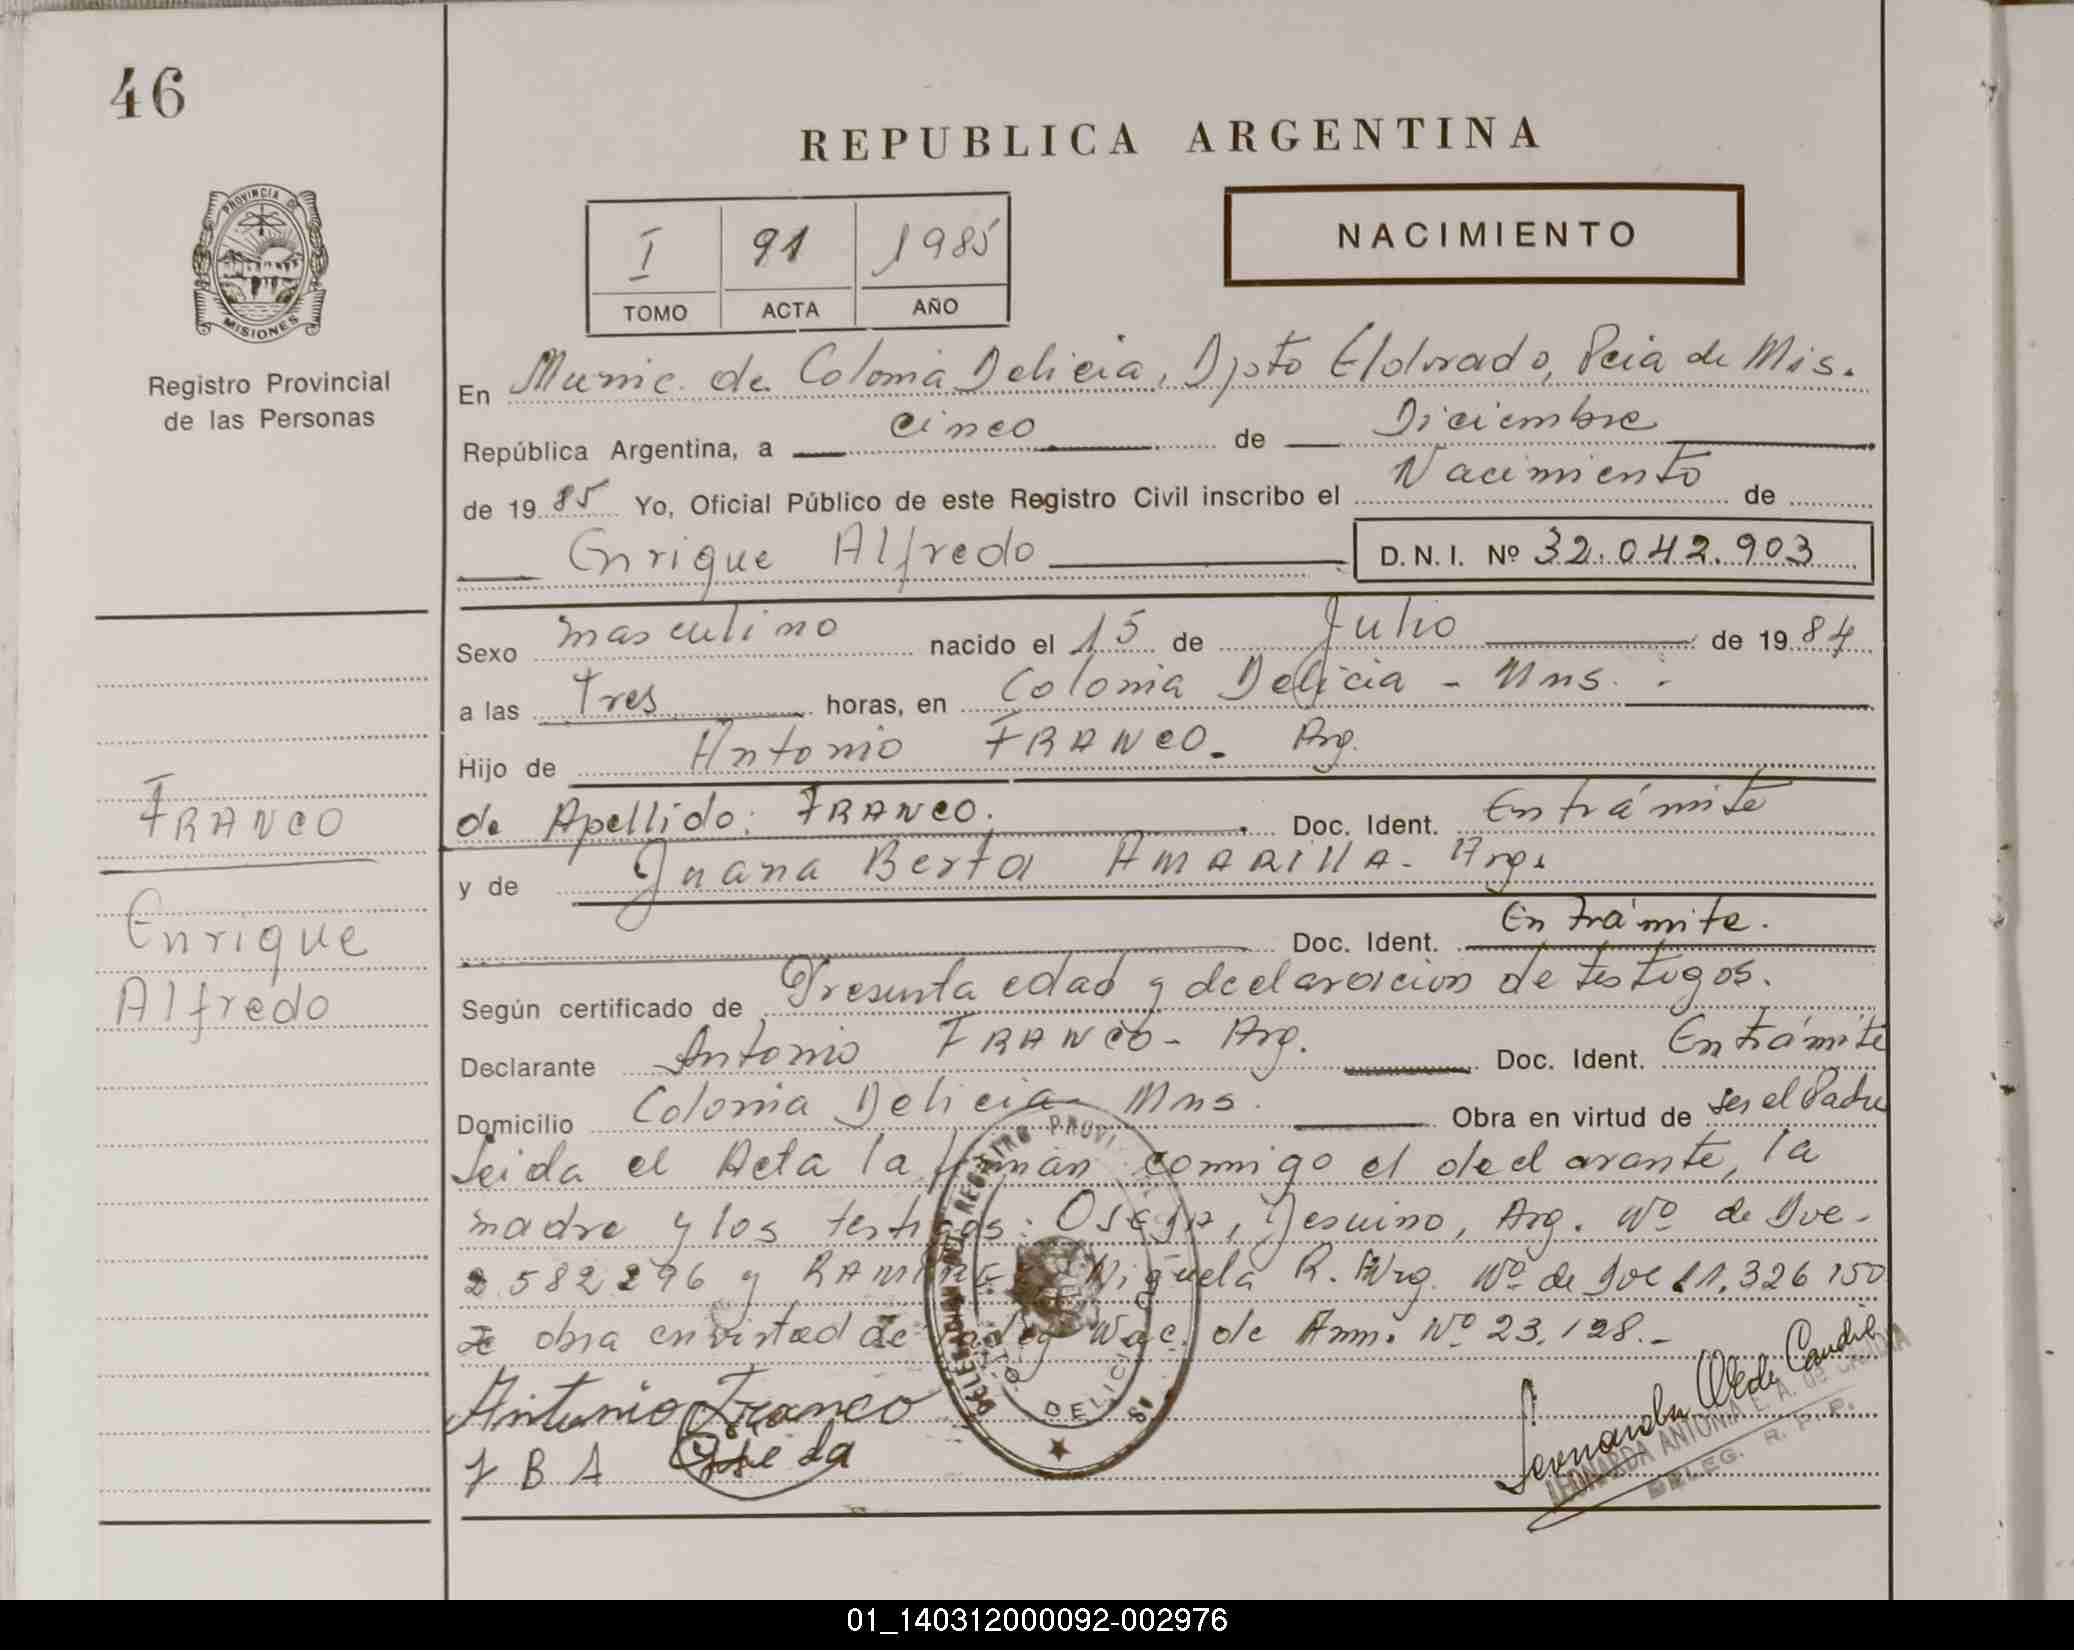 46
REPUBLICA ARGENTINA
PROVINCIA DE
MISIONES
I 91 1985
TOMO ACTA AÑO
NACIMIENTO
Registro Provincial
de las Personas
En Munic. de Colonia Delicia, Dpto Eldorado, Pcia de Mis.
República Argentina, a cinco de Diciembre
de 19 85 Yo, Oficial Público de este Registro Civil inscribo el Nacimiento de
Enrique Alfredo D.N.I. Nº 32.042.903
Sexo masculino nacido el 15 de Julio de 19 84
a las Tres horas, en Colonia Delicia - Mns.
Hijo de Antonio FRANCO. Arg.
de Apellido: FRANCO. Doc. Ident. En trámite
y de Juana Berta AMARILLA - Arg.
Doc. Ident. En trámite.
Según certificado de Presunta edad y declaracion de testigos.
Declarante Antonio FRANCO - Arg. Doc. Ident. En trámite
Domicilio Colonia Delicia - Mns. Obra en virtud de ser el Padre
Leida el Acta la firman conmigo el declarante, la
madre y los testigos: Jesuino, Arg. Nº de Doc-
2582296 y R. Arg. Nº de Doc 11.326 150
obra en virtud de Nac. de Anm. Nº 23.128.-
Antonio Franco
J B A
FRANCO
Enrique
Alfredo
REGISTRO PROVI
DELICIA
LEONARDA ANTONIA E. A. de CANDIA
DELEG. R. P. P.
01_140312000092-002976